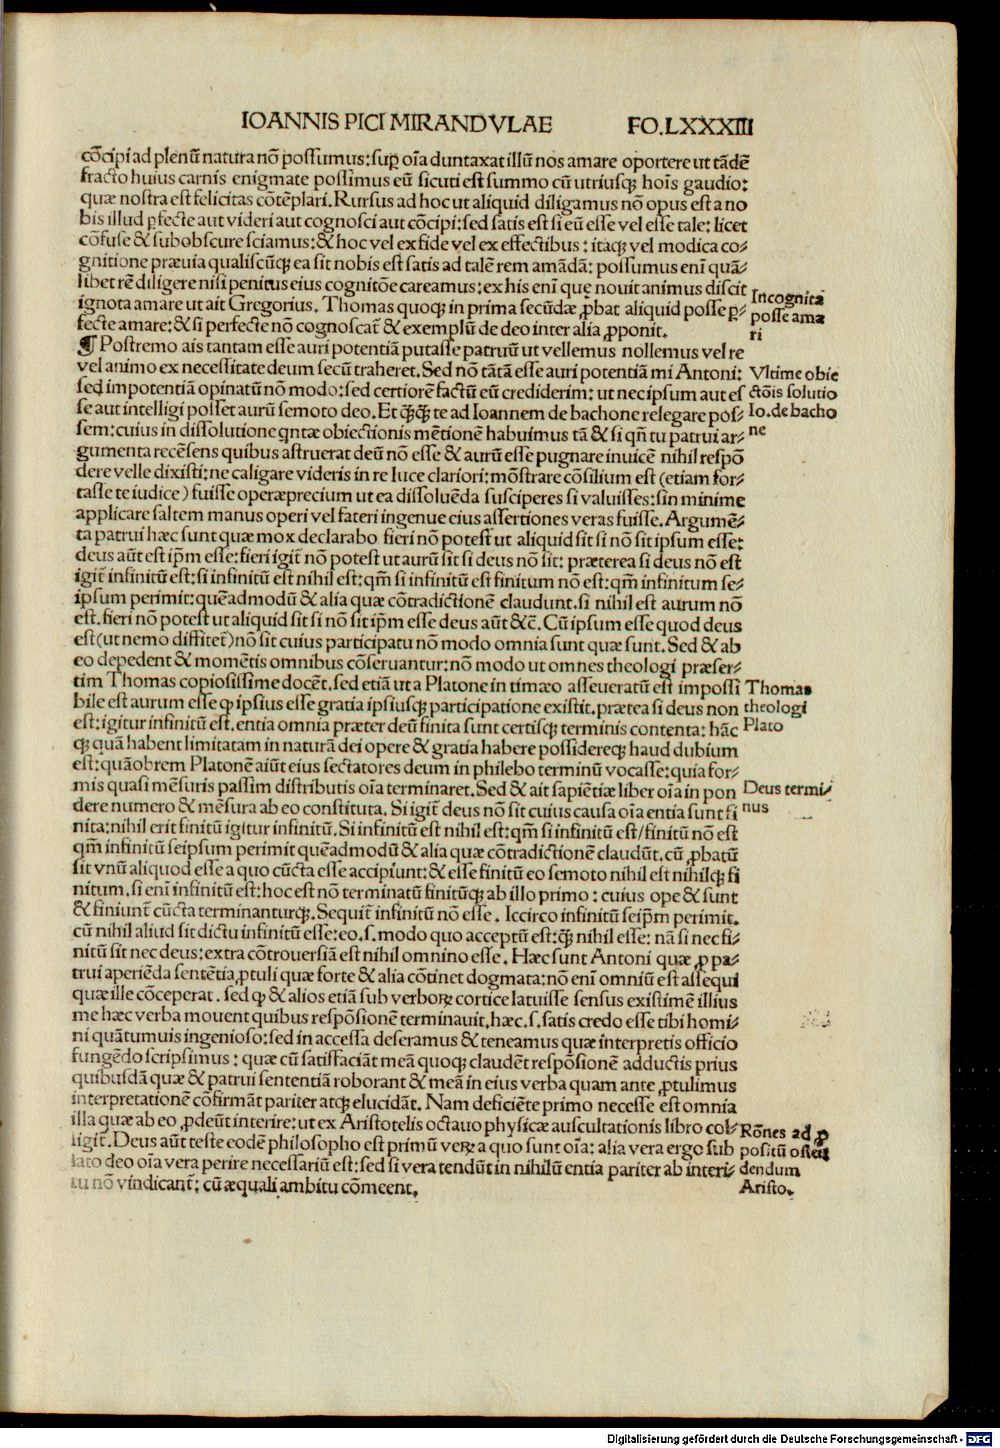 IOANNIS PICI MIRANDVLAE FO.LXXXIII
cõcipi ad plenũ natura nõ possumus: sup oĩa duntaxat illũ nos amare oportere ut tãdẽ
fracto huius carnis enigmate possimus eũ sicuti est summo cũ utriusq; hoĩs gaudio:
quæ nostra est felicitas cõtẽplari. Rursus ad hoc ut aliquid diligamus nõ opus est a no
bis illud ꝑfecte aut videri aut cognosci aut cõcipi: sed satis est si eũ esse vel esse tale: licet
cõfuse & subobscure sciamus: & hoc vel ex fide vel ex effectibus: itaq; vel modica co⸗
gnitione præuia qualiscũq; ea sit nobis est satis ad talẽ rem amãdã: possumus eni quã⸗
libet rẽ diligere nisi penitus eius cognitõe careamus: ex his eni que nouit animus discit
ignota amare ut ait Gregorius. Thomas quoq; in prima secũdæ ꝓbat aliquid posse ꝑ⸗
fecte amare: & si perfecte nõ cognoscat̃ & exemplũ de deo inter alia ꝓponit.
Incognita
posse ama
ri
¶ Postremo ais tantam esse auri potentiã putasse patruũ ut vellemus nollemus vel re
vel animo ex necessitate deum secũ traheret. Sed nõ tãtã esse auri potentiã mi Antoni:
sed impotentiã opinatũ nõ modo: sed certiorẽ factũ eũ crediderim: ut necipsum aut es
se aut intelligi posset aurũ semoto deo. Et q̃q̃ te ad Ioannem de bachone relegare pos⸗
sem: cuius in dissolutione qntæ obiectionis mẽtionẽ habuimus tã & si qñ tu patrui ar⸗
Vltime obie
ctõis solutio
Io. de bacho
ne
gumenta recẽsens quibus astruerat deũ nõ esse & aurũ esse pugnare inuicẽ nihil respõ
dere velle dixisti: ne caligare videris in re luce clariori: mõstrare cõsilium est (etiam for⸗
tasse te iudice) fuisse operæprecium ut ea dissoluẽda susciperes si valuisses: sin minime
applicare saltem manus operi vel fateri ingenue eius assertiones veras fuisse. Argumẽ⸗
ta patrui hæc sunt quæ mox declarabo fieri nõ potest ut aliquid sit si nõ sit ipsum esse:
deus aũt est ipm̃ esse: fieri igit̃ nõ potest ut aurũ sit si deus nõ sit: præterea si deus nõ est
igit̃ infinitũ est: si infinitũ est nihil est: qm̃ si infinitũ est finitum nõ est: qm̃ infinitum se⸗
ipsum perimit: quẽadmodũ & alia quæ cõtradictionẽ claudunt. si nihil est aurum nõ
est. fieri nõ potest ut aliquid sit si nõ sit ipm̃ esse deus aũt &c̃. Cũ ipsum esse quod deus
est (ut nemo diffitet̃) nõ sit cuius participatu nõ modo omnia sunt quæ sunt. Sed & ab
eo depedent & momẽtis omnibus cõseruantur: nõ modo ut omnes theologi præser⸗
tim Thomas copiosissime docẽt. sed etiã ut a Platone in timæo asseueratũ est impossi
bile est aurum esse qp ipsius esse gratia ipsiusq; participatione existit. prætea si deus non
est: igitur infinitũ est. entia omnia præter deũ finita sunt certisq; terminis contenta: hãc
Thomas
theologi
Plato
q; quã habent limitatam in naturã dei opere & gratia habere possidereq; haud dubium
est: quãobrem Platonẽ aiũt eius sectatores deum in philebo terminũ vocasse: quia for⸗
mis quasi mẽsuris passim distributis oĩa terminaret. Sed & ait sapiẽtiæ liber oĩa in pon
dere numero & mẽsura ab eo constituta. Si igit̃ deus nõ sit cuius causa oĩa entia sunt fi
Deus termi⸗
nus
nita: nihil erit finitũ igitur infinitũ. Si infinitũ est nihil est: qm̃ si infinitũ est/ finitũ nõ est
qm̃ infinitũ seipsum perimit quẽadmodũ & alia quæ cõtradictionẽ claudũt. cũ ꝓbatũ
sit vnũ aliquod esse a quo cũcta esse accipiũt: & esse finitũ eo semoto nihil est nihilq; fi
nitum. si eni infinitũ est: hoc est nõ terminatũ finitũq; ab illo primo: cuius ope & sunt
& finiunt̃ cũcta terminanturq;. Sequit̃ infinitũ nõ esse. Iccirco infinitũ seipm̃ perimit.
cũ nihil aliud sit dictu infinitũ esse: eo. s. modo quo acceptũ est: q̃ nihil esse: nã si nec fi⸗
nitũ sit nec deus: extra cõtrouersiã est nihil omnino esse. Hæc sunt Antoni quæ ꝓ pa⸗
trui aperiẽda sentẽtia ꝓtuli quæ forte & alia cõtinet dogmata: nõ eni omniũ est assequi
quæ ille cõceperat. sed qp & alios etiã sub verboꝝ cortice latuisse sensus existimẽ illius
me hæc verba mouent quibus respõsionẽ terminauit. hæc. s. satis credo esse tibi homi⸗
ni quãtumuis ingenioso: sed in accessa deseramus & teneamus quæ interpretis officio
fungẽdo scripsimus: quæ cũ satisfaciãt meã quoq; claudẽt respõsionẽ adductis prius
quibusdã quæ & patrui sententiã roborant & meã in eius verba quam ante ꝓtulimus
interpretationẽ cõfirmãt pariter atq; elucidãt. Nam deficiẽte primo necesse est omnia
illa quæ ab eo ꝓdeũt interire: ut ex Aristotelis octauo physicæ auscultationis libro col⸗
ligit̃. Deus aũt teste eodẽ philosopho est primũ veꝝ a quo sunt oĩa: alia vera ergo sub
lato deo oĩa vera perire necessariũ est: sed si vera tendũt in nihilũ entia pariter ab interi⸗
tu nõ vindicant̃: cũ æquali ambitu cõmeent.
Rõnes ad ꝓ
positũ osten
dendum
Aristo.
Digitalisierung gefördert durch die Deutsche Forschungsgemeinschaft - DFG